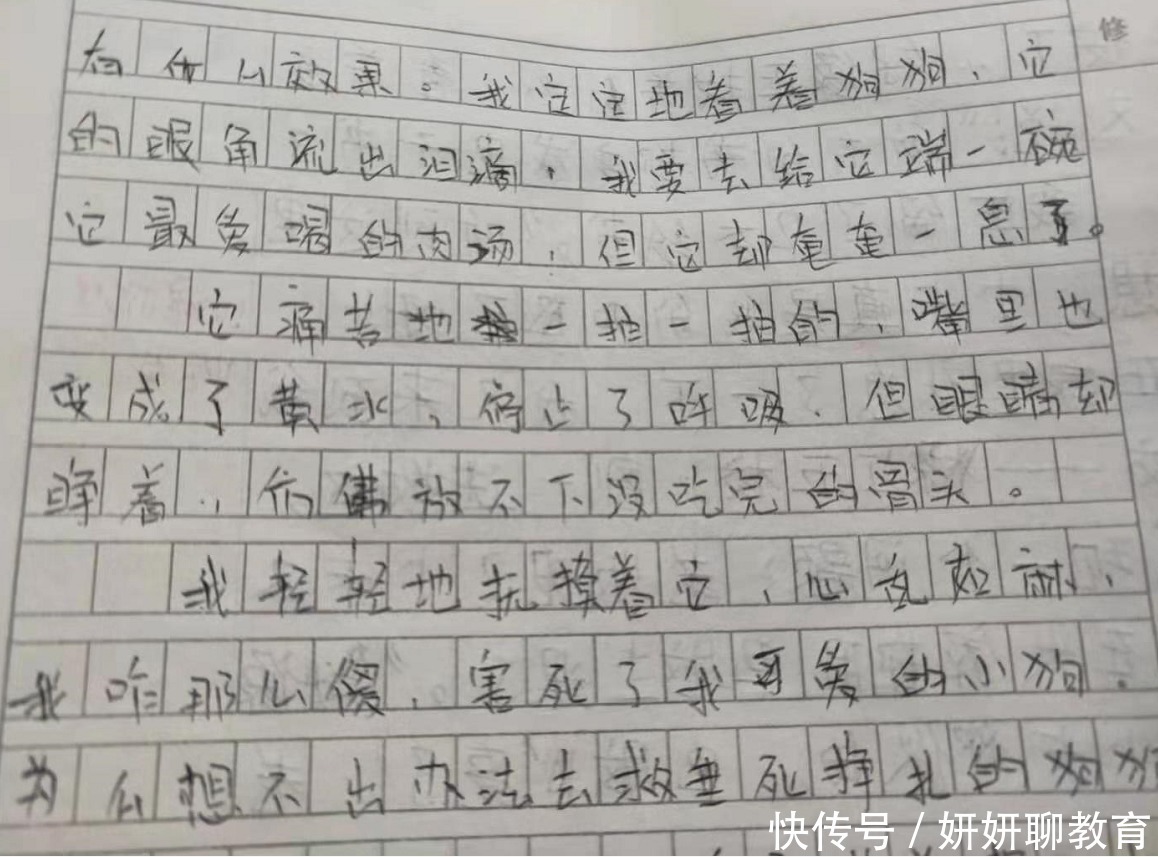 修
有什么效果。我定定地看着狗狗，它
的眼角流出泪滴，我要去给它端一碗
它最爱喝的肉汤，但它却奄奄一息了。
它痛苦地一抽一抽的，嘴里也
变成了黄水，停止了呼吸，但眼睛却
睁着，仿佛放不下没吃完的骨头。
我轻轻地抚摸着它，心乱如麻，
我咋那么傻，害死了我可爱的小狗。
为么想不出办法去救垂死挣扎的狗狗
快传号 / 妍妍聊教育